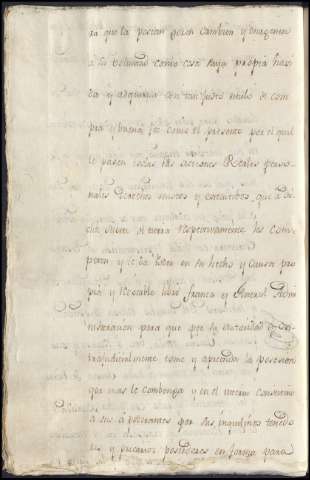 ra que la posean gosen cambien y enagenen
a su voluntad como cosa suya propia havi
da y adquirida con tan justo titulo de com
pra y buena fee como el presente por el qual
le pasen todas las acciones Reales perso
nales derechos mixtos y executibos, que a di
cha suerte de tierra respectivamente les com
peten y le da Poder en su hecho y causa pro
pia y Yrrevocable libre franca y General Admi
nistracion para que por su autoridad o ex
trajudicialmente tome y aprenda la posesion
que mas le combenga y en el interin constituio
a sus otorgantes por sus inquilinos tenedo
res y precarios posehedores en forma para